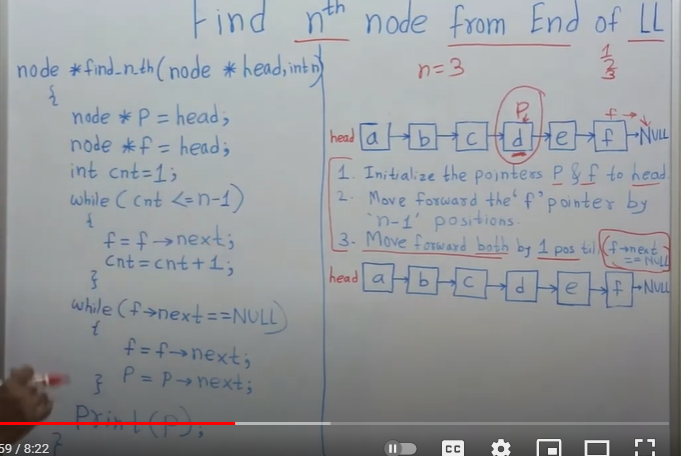 Find nth node from End of LL
node *find_nth(node * head, int n)
{
node * P = head;
node * f = head;
int cnt=1;
while (cnt <=n-1)
{
f=f→next;
cnt=cnt+1;
}
while (f→next==NULL)
{
f=f→next;
P=P→next;
}
Print(P);
}
n=3
1
2
3
P
f→
head a→b→c→d→e→f→NULL
1. Initialize the pointers P & f to head.
2. Move forward the 'f' pointer by
'n-1' positions.
3. Move forward both by 1 pos till (f→next
==NULL)
head a→b→c→d→e→f→NULL
59 / 8:22
CC